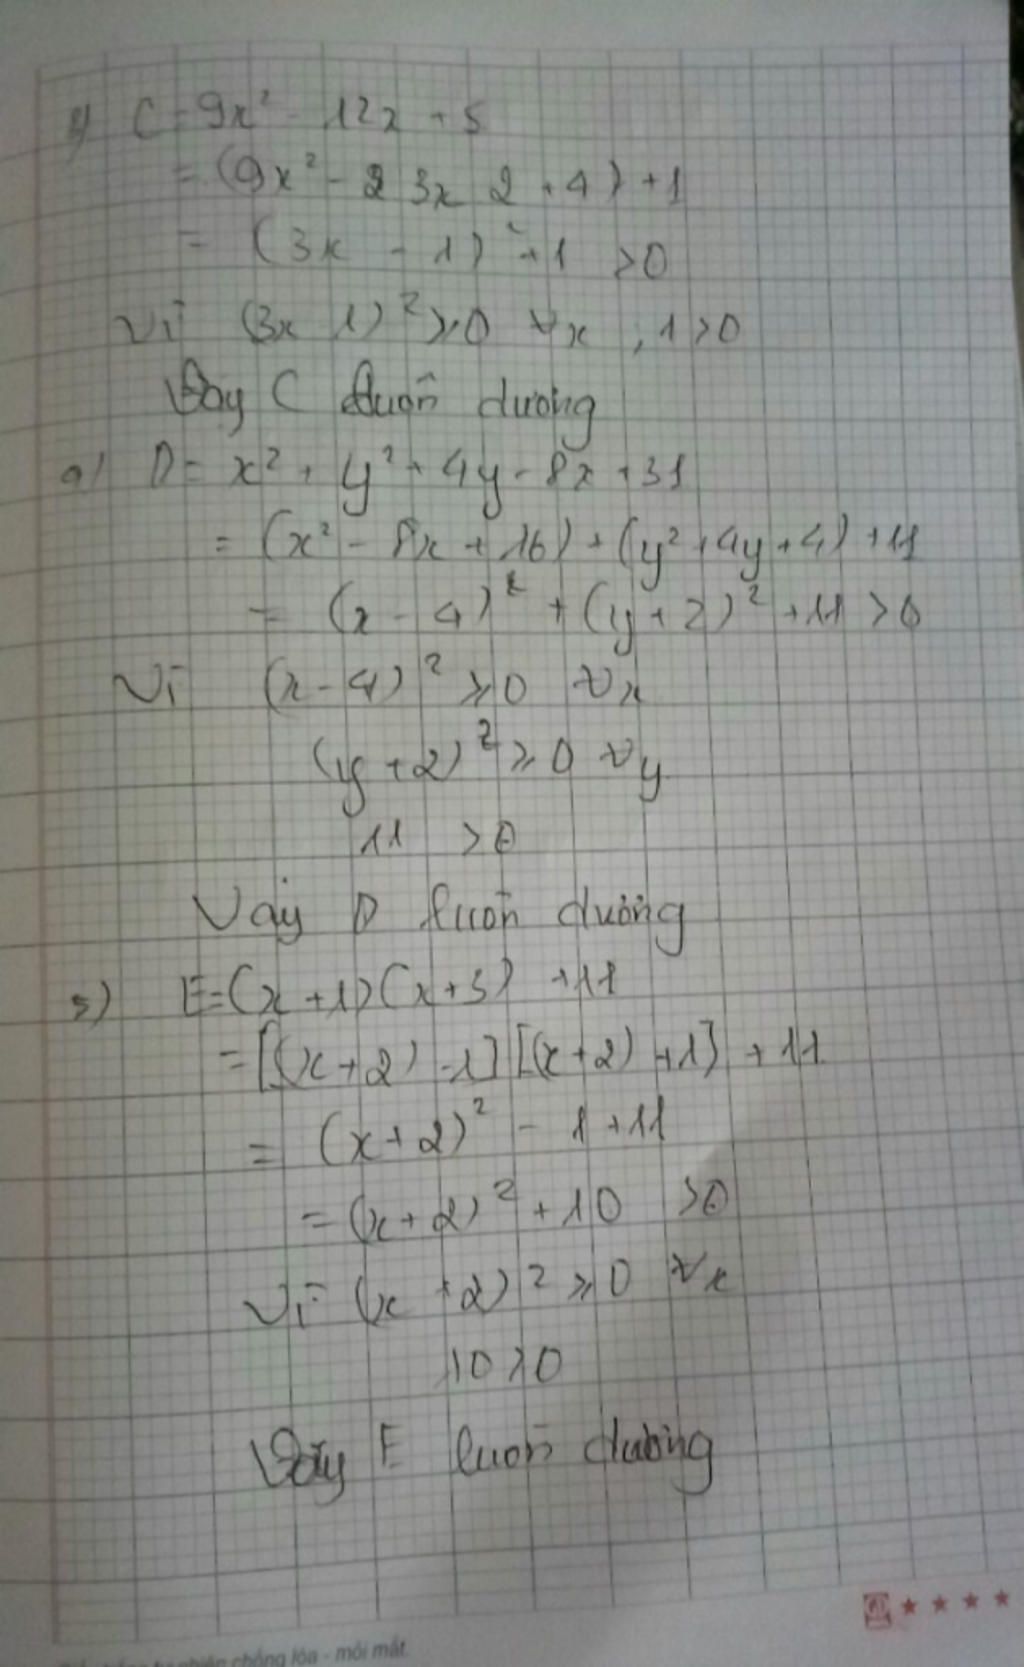 C = 9x² - 12x + 5
= (9x² - 2 3x 2 + 4) + 1
= (3x - 1)² + 1 > 0
Vì (3x 1)² ≥ 0 ∀x , 1 > 0
Vậy C luôn dương
D = x² + y² + 4y - 8x + 31
= (x² - 8x + 16) + (y² + 4y + 4) + 11
= (x - 4)² + (y + 2)² + 11 > 0
Vì (x - 4)² ≥ 0 ∀x
(y + 2)² ≥ 0 ∀y
11 > 0
Vậy D luôn dương
5) E = (x + 1)(x + 3) + 11
= [(x + 2) - 1][(x + 2) + 1] + 11
= (x + 2)² - 1 + 11
= (x + 2)² + 10 > 0
Vì (x + 2)² ≥ 0 ∀x
10 > 0
Vậy E luôn dương
chống lóa - mỏi mắt.